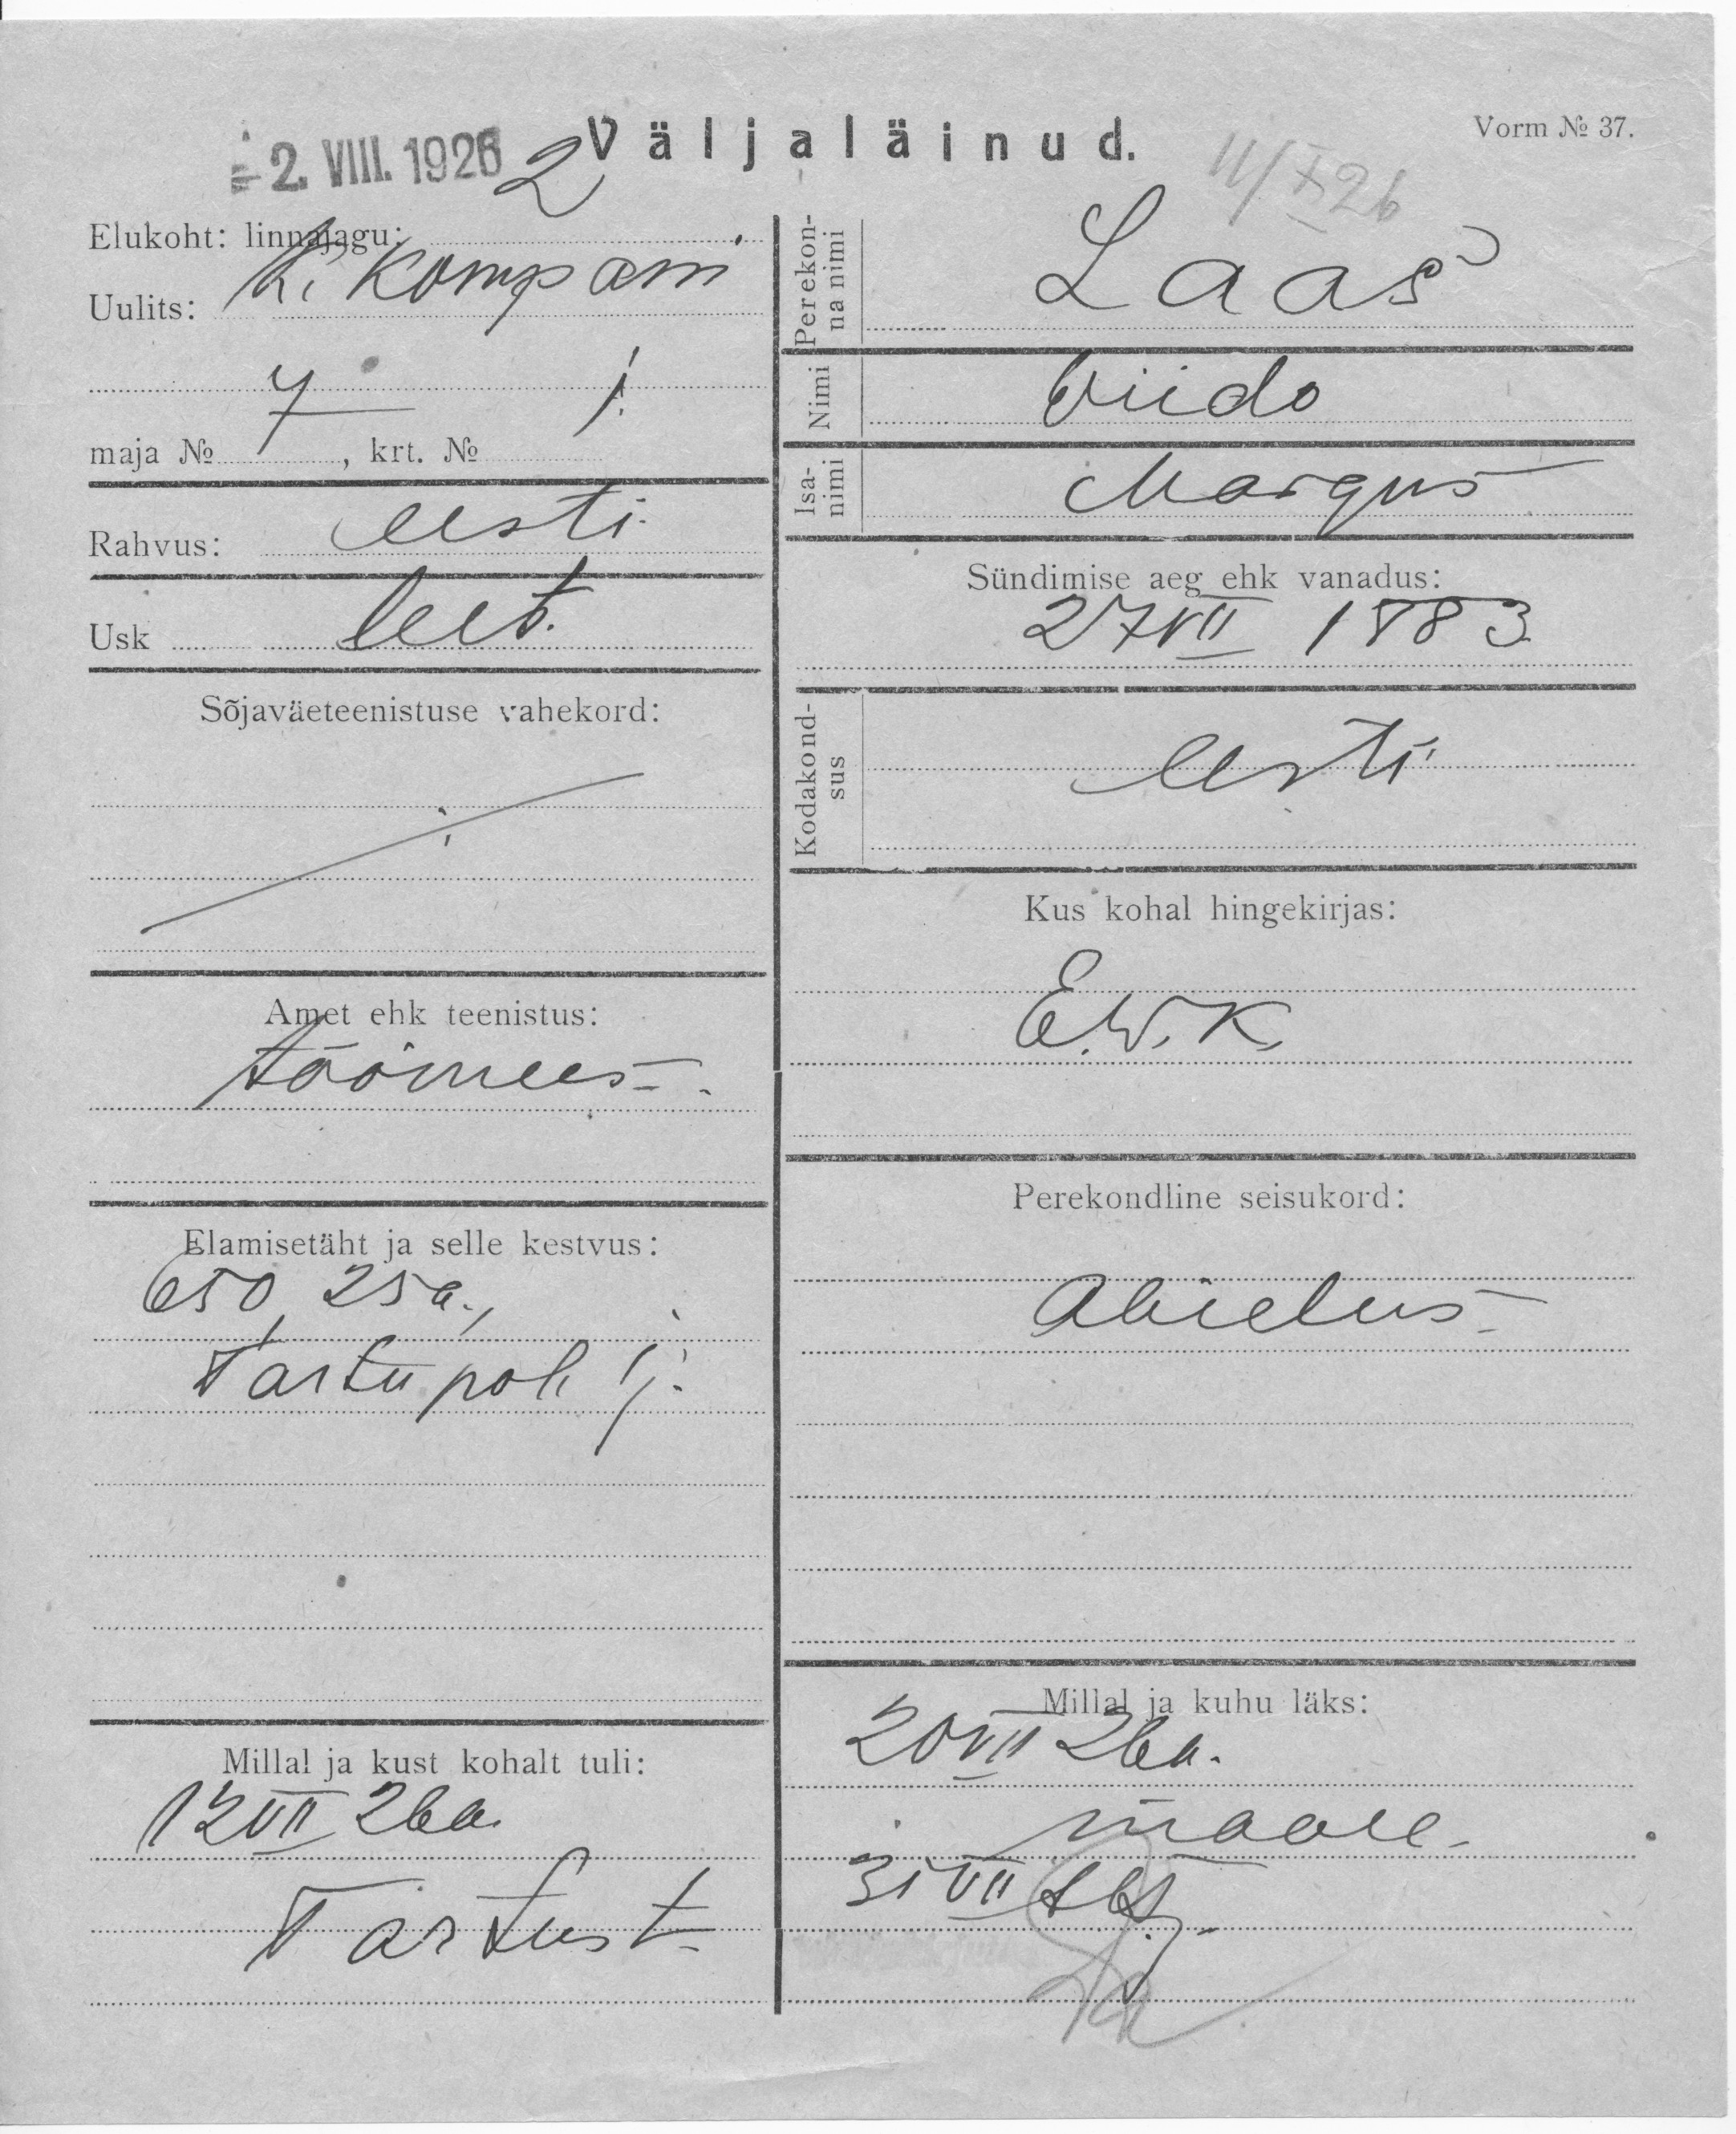 Vorm № 37.
2. VIII. 1926 2 Väljaläinud.
Elukoht: linnajagu:
Uulits: K. Kompani
7 1.
maja № , krt. №
Rahvus: eesti
Usk lut.
Sõjaväeteenistuse vahekord:
Amet ehk teenistus:
töömees.
Elamisetäht ja selle kestvus:
650, 25a.,
Tartu pol. j.
Millal ja kust kohalt tuli:
12 VII 26a.
Tartust
Perekonna nimi Laas
Nimi Viido
Isanimi Margus
Sündimise aeg ehk vanadus:
27 VII 1883
Kodakondsus eesti
Kus kohal hingekirjas:
E.W.K.
Perekondline seisukord:
Abielus
Millal ja kuhu läks:
20 VII 26a.
maale.
31 VII